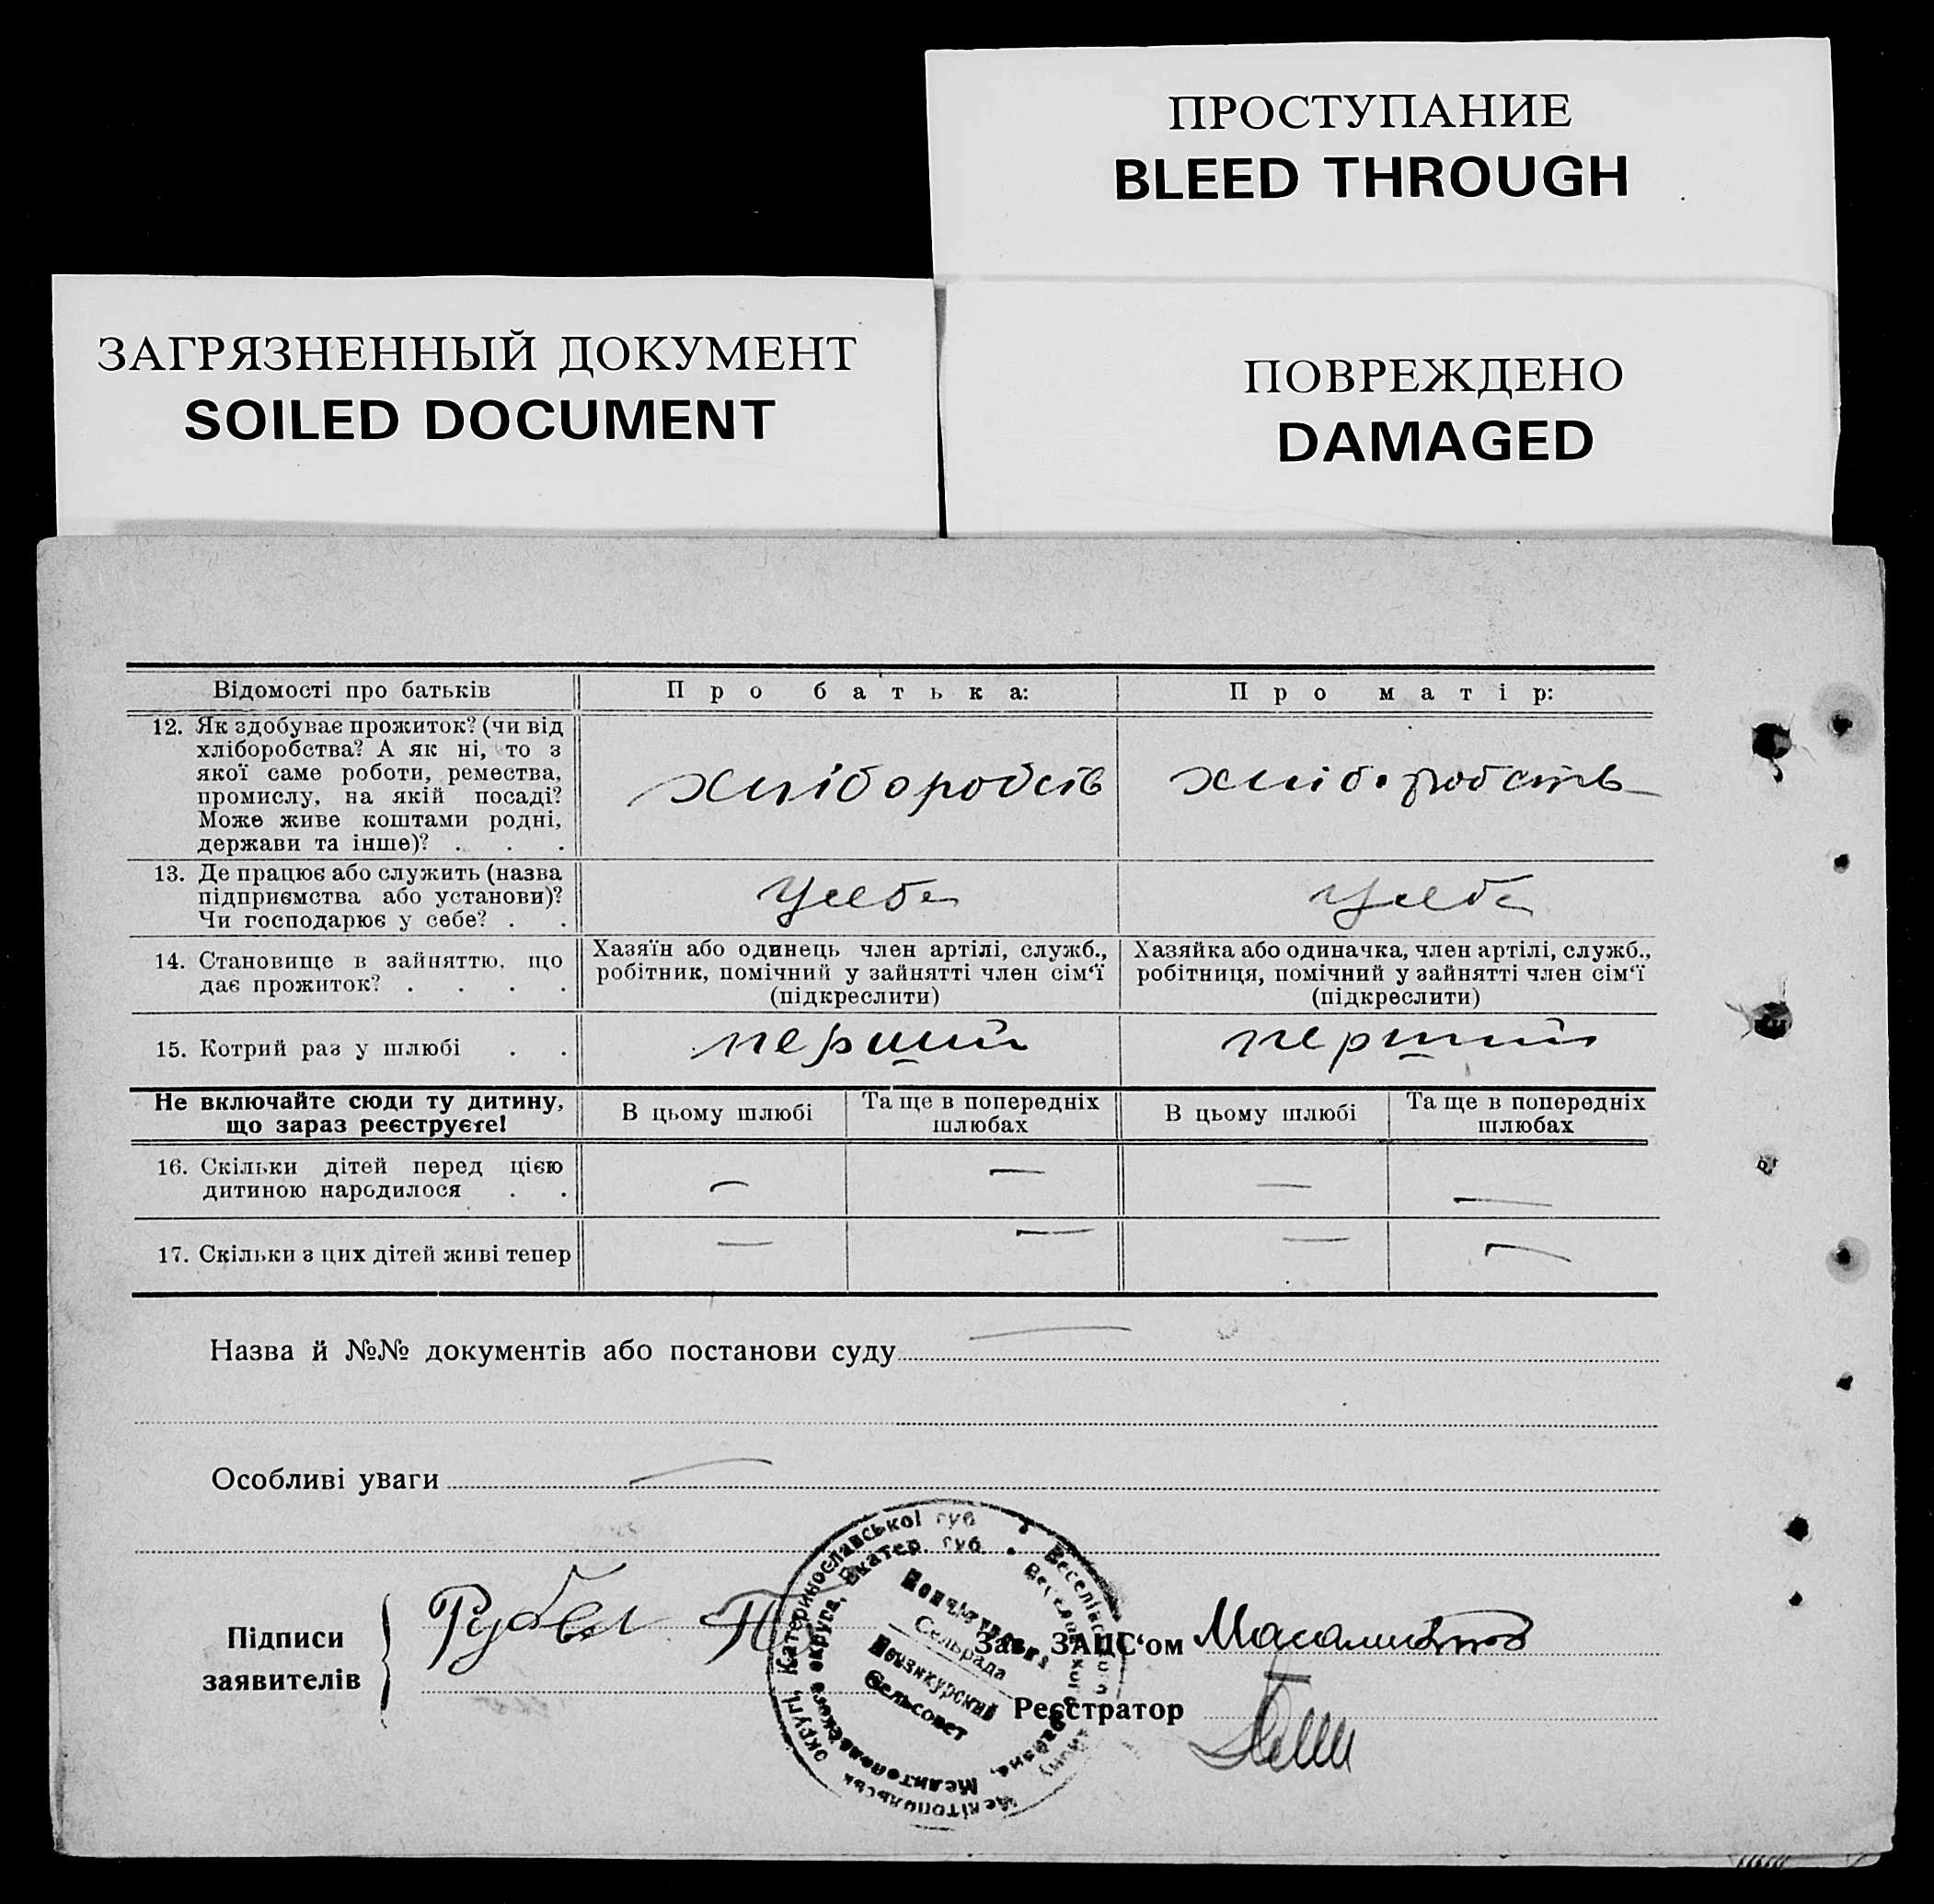 ПРОСТУПАНИЕ
BLEED THROUGH
ЗАГРЯЗНЕННЫЙ ДОКУМЕНТ
SOILED DOCUMENT
ПОВРЕЖДЕНО
DAMAGED
Відомості про батьків
Про батька:
Про матір:
12. Як здобуває прожиток? (чи від
хліборобства? А як ні, то з
якої саме роботи, ремества,
промислу, на якій посаді?
Може живе коштами родні,
держави та інше)? . . .
хліборобсів
хліборобств
13. Де працює або служить (назва
підприємства або установи)?
Чи господарює у себе? . .
у себе
у себе
14. Становище в зайняттю, що
дає прожиток? . . . .
Хазяїн або одинець член артілі, служб.,
робітник, помічний у зайнятті член сім‘ї
(підкреслити)
Хазяйка або одиначка, член артілі, служб.,
робітниця, помічний у зайнятті член сім‘ї
(підкреслити)
15. Котрий раз у шлюбі . .
перший
перший
Не включайте сюди ту дитину,
що зараз реєструєте!
В цьому шлюбі
Та ще в попередніх
шлюбах
В цьому шлюбі
Та ще в попередніх
шлюбах
16. Скільки дітей перед цією
дитиною народилося . .
— — — —
17. Скільки з цих дітей живі тепер
— — — —
Назва й №№ документів або постанови суду —
Особливі уваги —
Підписи
заявителів
Рубел
Зав. ЗАЦС‘ом
Реєстратор
Катеринославської губ.
Екатер. губ.
Сельрада
Сельсовет
округа,
района,